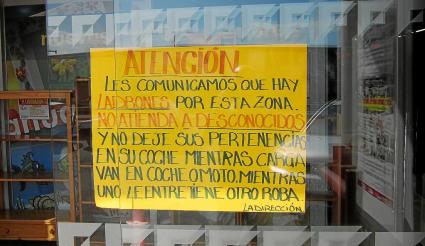 ATENCIÓN
LES COMUNICAMOS QUE HAY
LADRONES POR ESTA ZONA.
NO ATIENDA A DESCONOCIDOS
Y NO DEJE SUS PERTENENCIAS
EN SU COCHE MIENTRAS CARGA
VAN EN COCHE O MOTO. MIENTRAS
UNO LE ENTRETIENE OTRO ROBA
LA DIRECCIÓN